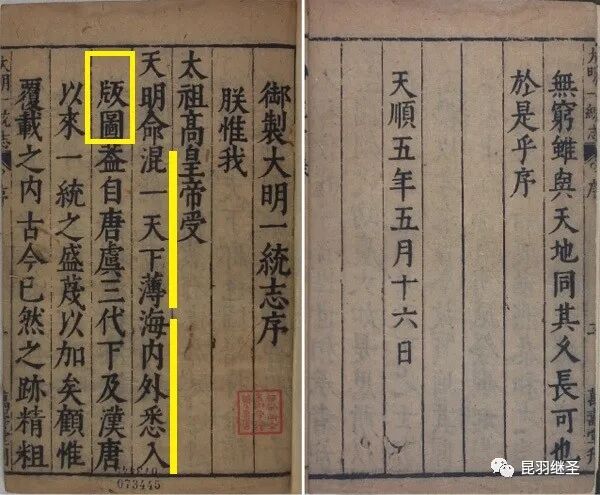 御製大明一統志序
朕惟我
太祖高皇帝受
天明命混一天下薄海內外悉入
版圖葢自唐虞三代下及漢唐
以來一統之盛蔑以加矣顧惟
覆載之內古今已然之跡精粗
073445
無窮雖與天地同其久長可也
於是乎序
天順五年五月十六日
大明一統志
序
昆羽继圣